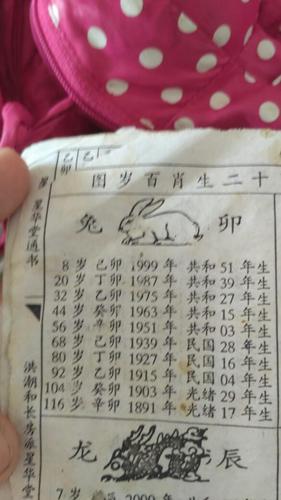 乙卯 乙
十二生肖百岁图
兔 卯
8 岁 己卯 1999 年 共和 51 年生
20 岁 丁卯 1987 年 共和 39 年生
32 岁 乙卯 1975 年 共和 27 年生
44 岁 癸卯 1963 年 共和 15 年生
56 岁 辛卯 1951 年 共和 03 年生
68 岁 己卯 1939 年 民国 28 年生
80 岁 丁卯 1927 年 民国 16 年生
92 岁 乙卯 1915 年 民国 04 年生
104 岁 癸卯 1903 年 光绪 29 年生
116 岁 辛卯 1891 年 光绪 17 年生
龙 辰
7 岁 2000 年
星华堂通书
洪潮和长房派星华堂